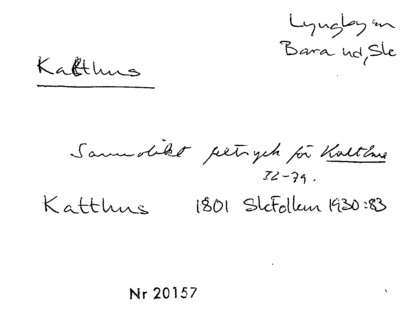 Lyngby sn
Bara hd, Ske
Katthus
Sannolikt feltryck för Kalthus
IL-79.
Katthus 1801 SkFolkm 1930:83
Nr 20157